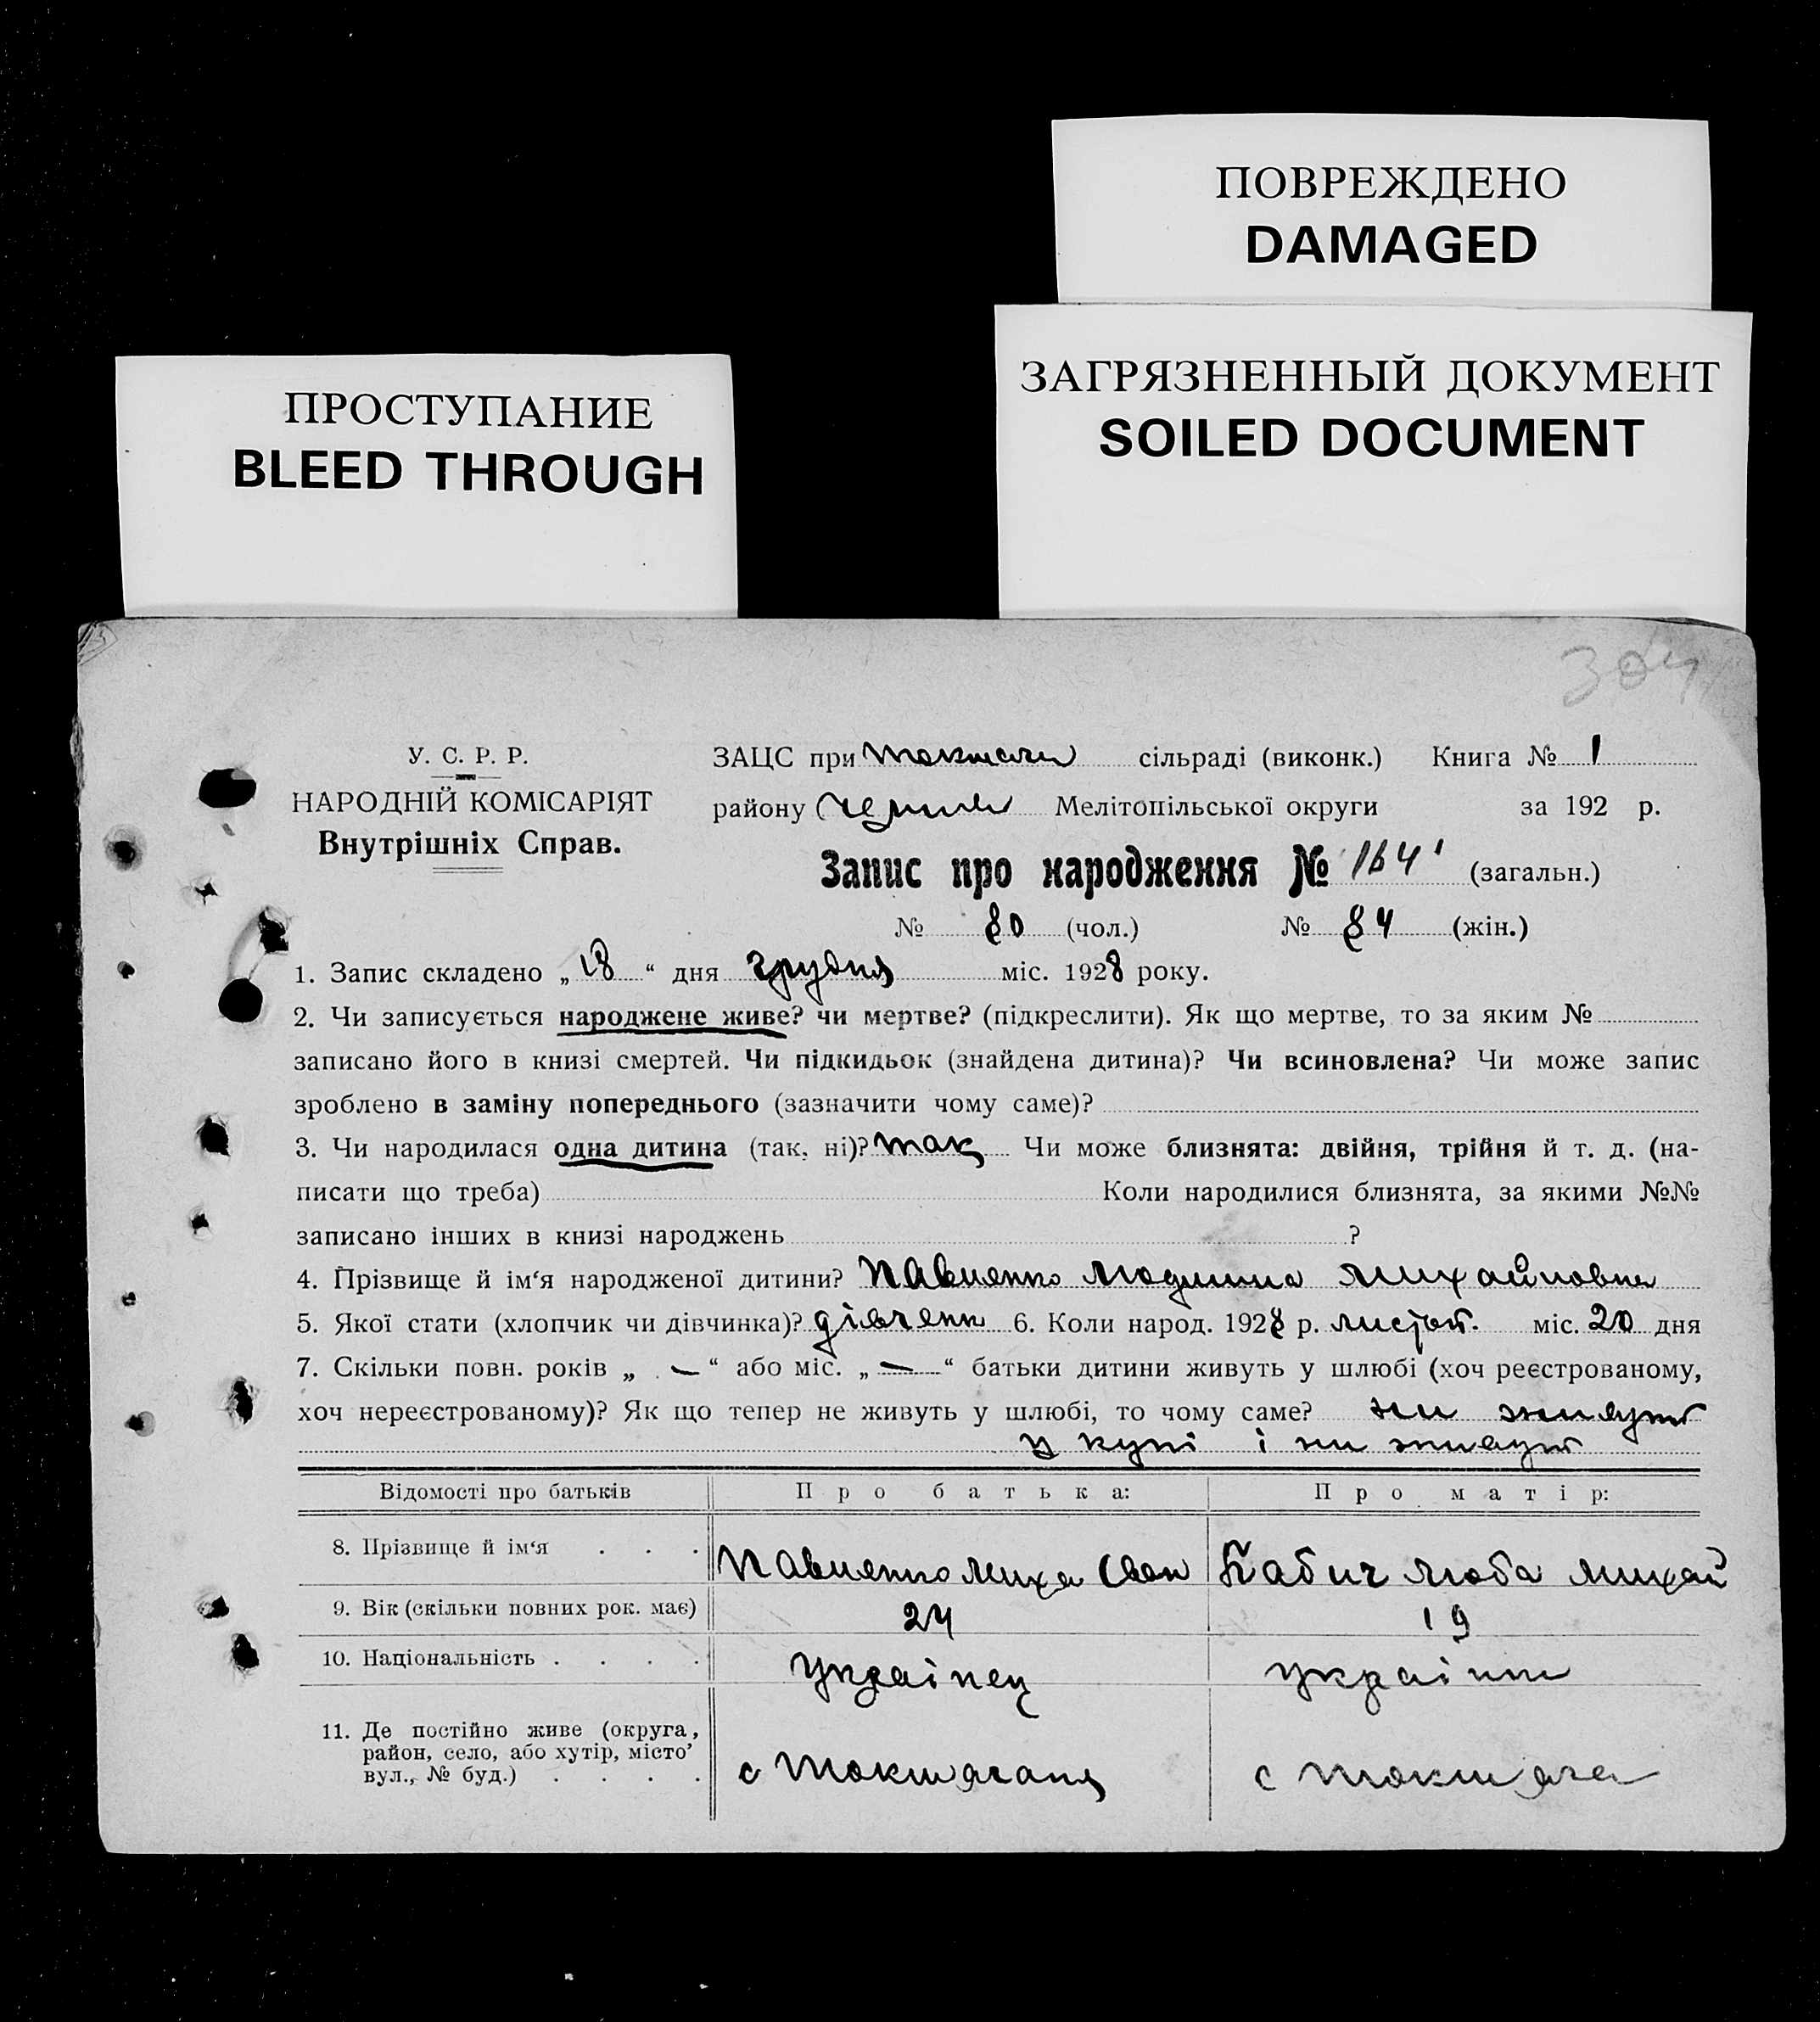 ПОВРЕЖДЕНО
DAMAGED
ЗАГРЯЗНЕННЫЙ ДОКУМЕНТ
SOILED DOCUMENT
ПРОСТУПАНИЕ
BLEED THROUGH
304
У. С. Р. Р.
НАРОДНІЙ КОМІСАРІЯТ
Внутрішніх Справ.
ЗАЦС при сільраді (виконк.) Книга № 1
району Мелітопільської округи за 192 р.
Запис про народження № 164 (загальн.)
№ 80 (чол.) № 84 (жін.)
1. Запис складено „18“ дня грудня міс. 1928 року.
2. Чи записується народжене живе? чи мертве? (підкреслити). Як що мертве, то за яким №
записано його в книзі смертей. Чи підкидьок (знайдена дитина)? Чи всиновлена? Чи може запис
зроблено в заміну попереднього (зазначити чому саме)?
3. Чи народилася одна дитина (так, ні)? так Чи може близнята: двійня, трійня й т. д. (на-
писати що треба) Коли народилися близнята, за якими №№
записано інших в книзі народжень ?
4. Прізвище й ім‘я народженої дитини? Павленко Людмила Михайловна
5. Якої стати (хлопчик чи дівчинка)? 6. Коли народ. 1928 р. листоп. міс. 20 дня
7. Скільки повн. років „ — “ або міс. „ — “ батьки дитини живуть у шлюбі (хоч реєстрованому,
хоч нереєстрованому)? Як що тепер не живуть у шлюбі, то чому саме? ни живут
у купі і ни живут
Відомості про батьків Про батька: Про матір:
8. Прізвище й ім‘я . . . Павленко Миха Иван Бабич Люба Михай
9. Вік (скільки повних рок. має) 24 19
10. Національність . . . . Українец
11. Де постійно живе (округа,
район, село, або хутір, місто’
вул., № буд.) . . . . с с